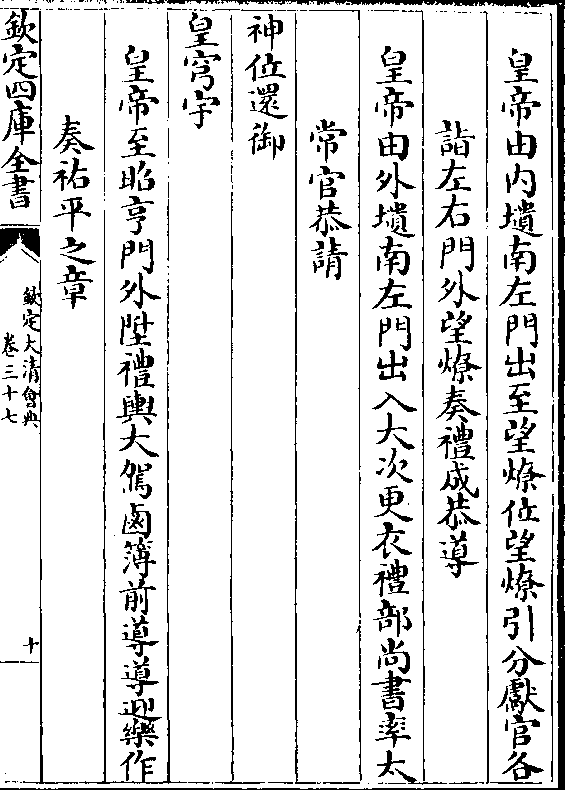 皇帝由内壝南左門出至望燎位望燎引分獻官各
詣左右門外望燎奏禮成恭導
皇帝由外壝南左門出入大次更衣禮部尚書率太
常官恭請
神位還御
皇穹宇
皇帝至昭亨門外陞禮輿大駕鹵簿前導導迎樂作
奏祐平之章
欽定四庫全書
欽定大清會典
卷三十七
十